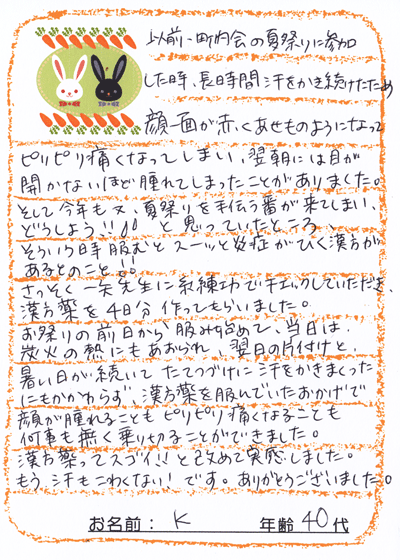 以前、町内会の夏祭りに参加
した時、長時間汗をかき続けたため
顔一面が赤くあせものようになって
ピリピリ痛くなってしまい、翌朝には目が
開かないほど腫れてしまったことがありました。
そして今年も又、夏祭りを手伝う番が来てしまい、
どうしよう!! と思っていたところ、
そういう時服むとスーッと炎症がひく漢方が
あるとのこと!!
さっそく一矢先生に糸練功でチェックしていただき、
漢方薬を4日分作ってもらいました。
お祭りの前日から服み始めて、当日は、
炭火の熱にもあおられ、翌日の片付けと、
暑い日が続いてたてつづけに汗をかきまくった
にもかかわらず、漢方薬を服んでいたおかげで
顔が腫れることもピリピリ痛くなることも
何事も無く乗り切ることができました。
漢方薬ってスゴイ!!と改めて実感しました。
もう、汗もこわくない!です。ありがとうございました。
お名前: K 年齢 40代